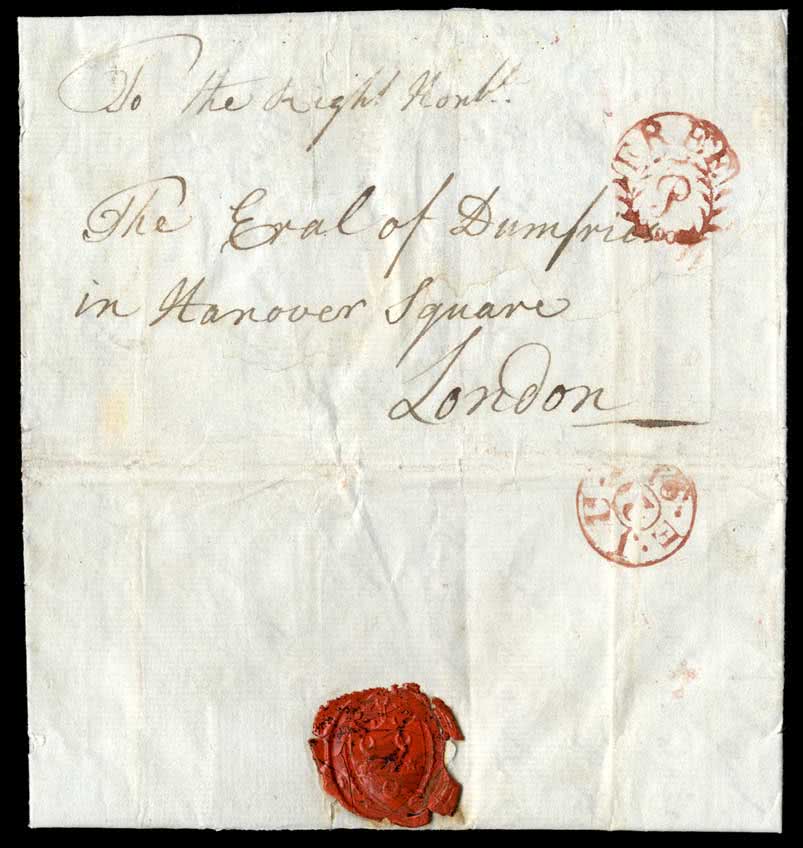 To the Right Honbl.
FREE
P
The Eral of Dumfries
in Hanover Square
London